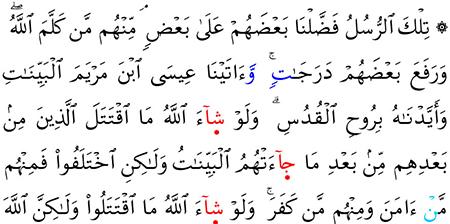 ۞ تِلْكَ ٱلرُّسُلُ فَضَّلْنَا بَعْضَهُمْ عَلَىٰ بَعْضٍۢ ۘ مِّنْهُم مَّن كَلَّمَ ٱللَّهُ ۖ
وَرَفَعَ بَعْضَهُمْ دَرَجَـٰتٍۢ ۚ وَءَاتَيْنَا عِيسَى ٱبْنَ مَرْيَمَ ٱلْبَيِّنَـٰتِ
وَأَيَّدْنَـٰهُ بِرُوحِ ٱلْقُدُسِ ۗ وَلَوْ شَآءَ ٱللَّهُ مَا ٱقْتَتَلَ ٱلَّذِينَ مِنۢ
بَعْدِهِم مِّنۢ بَعْدِ مَا جَآءَتْهُمُ ٱلْبَيِّنَـٰتُ وَلَـٰكِنِ ٱخْتَلَفُوا۟ فَمِنْهُم
مَّنْ ءَامَنَ وَمِنْهُم مَّن كَفَرَ ۚ وَلَوْ شَآءَ ٱللَّهُ مَا ٱقْتَتَلُوا۟ وَلَـٰكِنَّ ٱللَّهَ